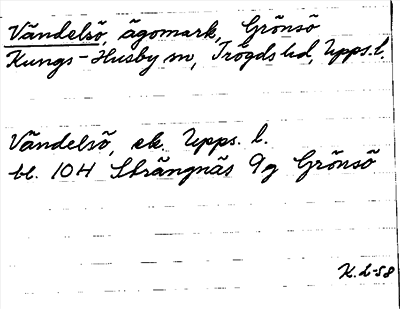 Vändelsö, ägomark, Grönsö
Kungs-Husby sn, Trögds hd, Upps. l.
Vändelsö, ek. Upps. l.
bl. 104 Strängnäs 9g Grönsö
K.L-58